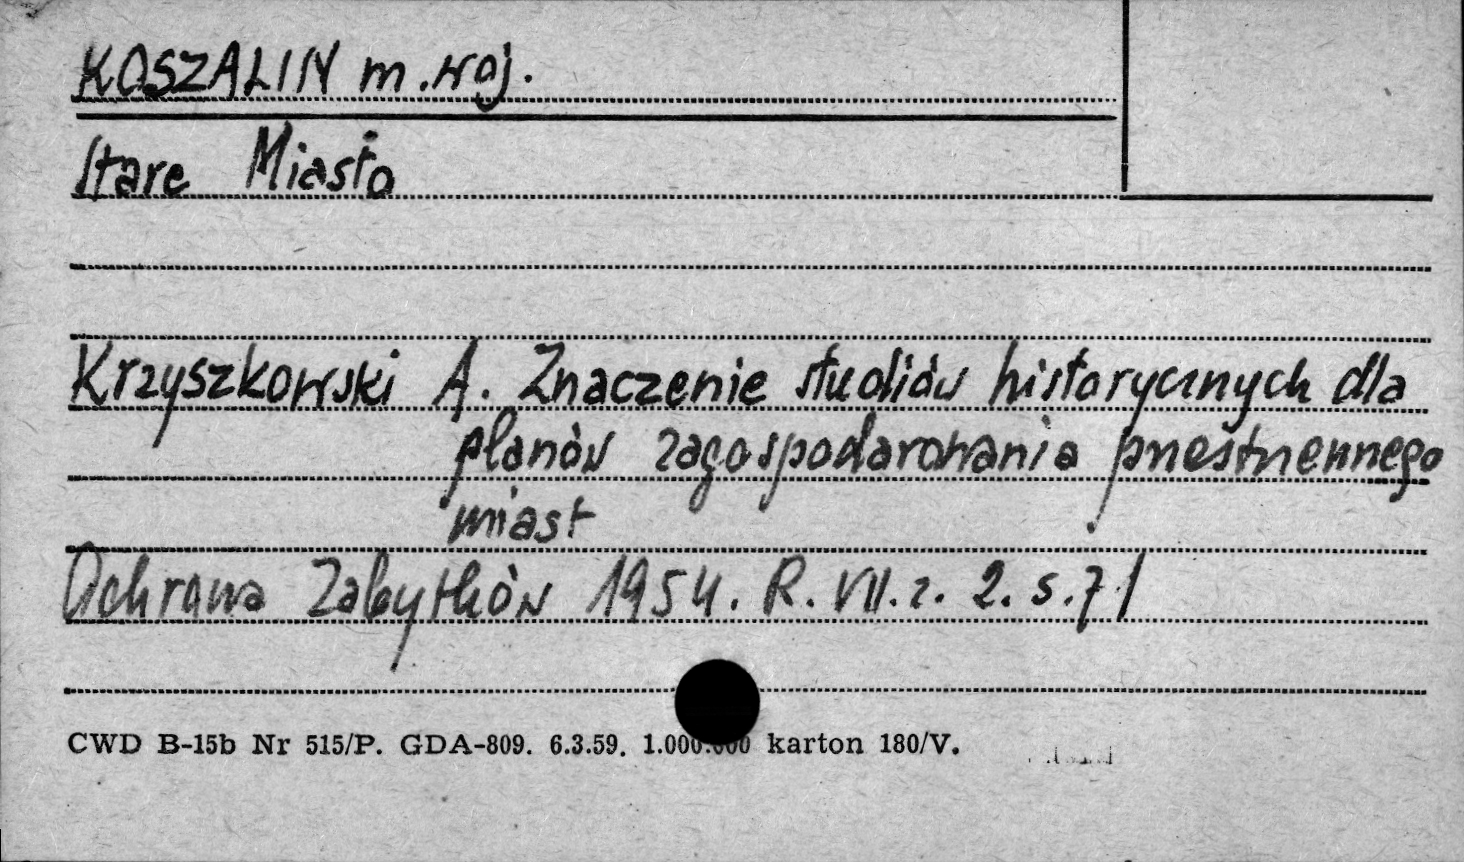 KOSZALIN m. woj.
Stare Miasto
Krzyszkowski A. Znaczenie studiów historycznych dla
planów zagospodarowania przestrzennego
miast
Ochrona Zabytków 1954. R. VII. z. 2. s. 71
CWD B-15b Nr 515/P. GDA-809. 6.3.59. 1.000.000 karton 180/V.